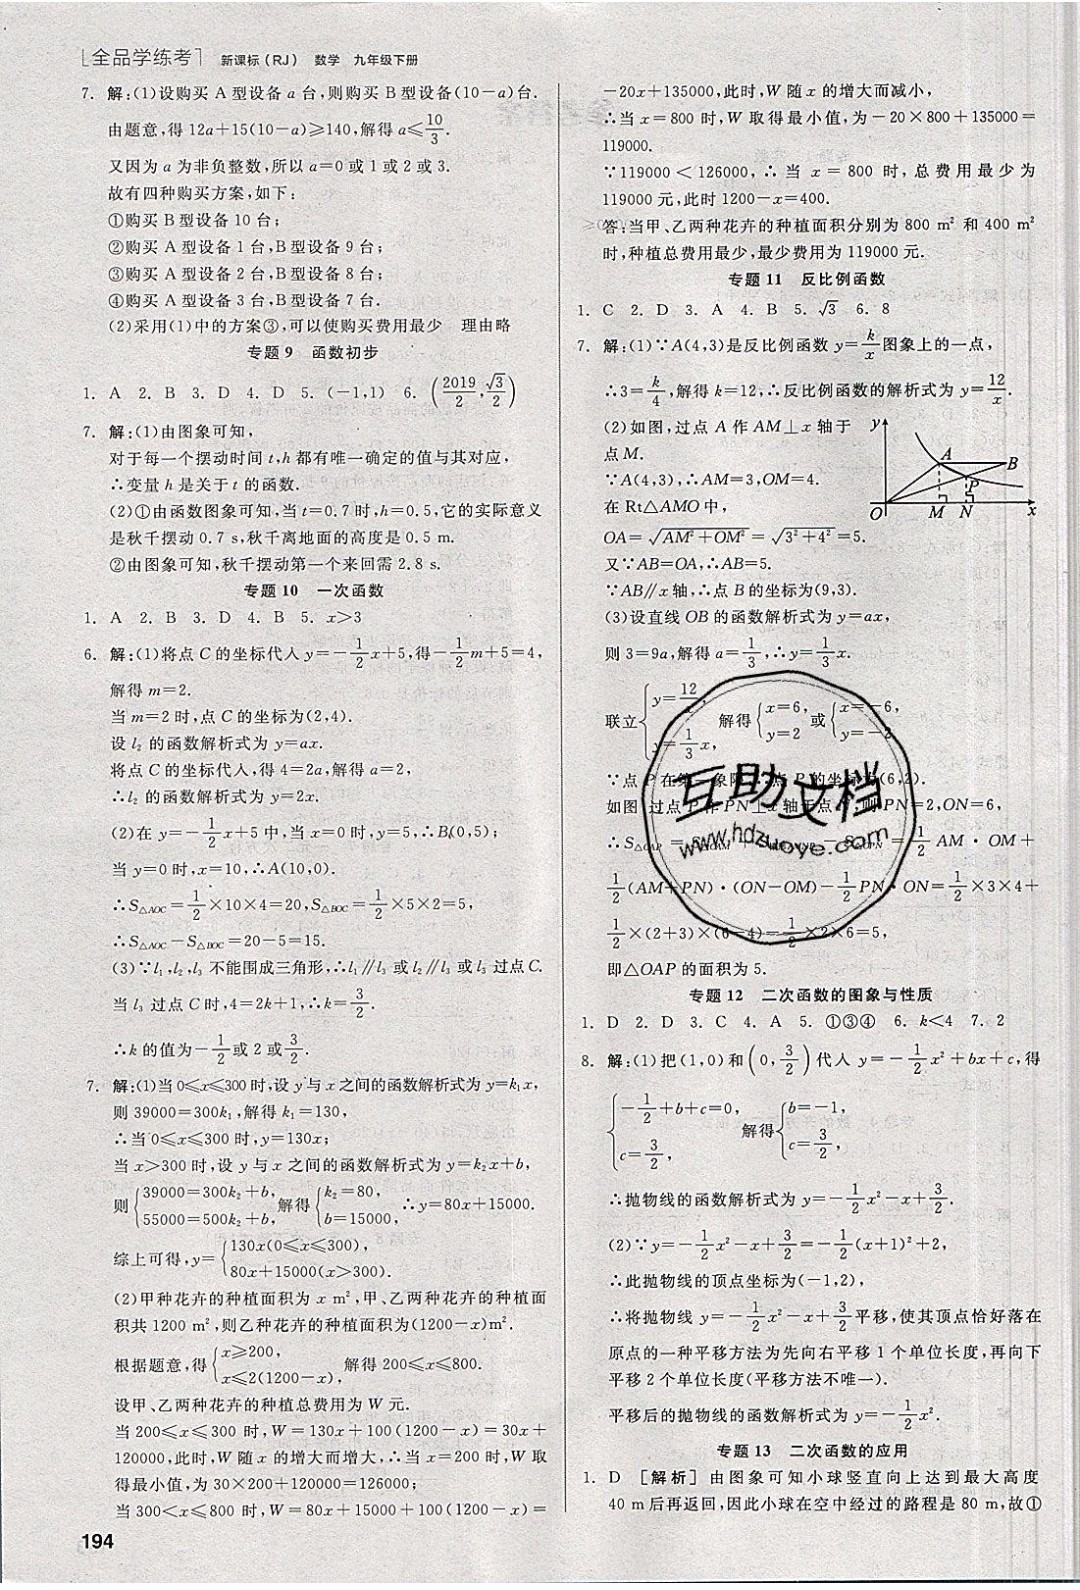 全品学练考 新课标(RJ) 数学 九年级下册
7. 解:(1)设购买 A 型设备 a 台,则购买 B 型设备(10-a)台.
由题意,得 12a+15(10-a)≥140,解得 a≤10/3.
又因为 a 为非负整数,所以 a=0 或 1 或 2 或 3.
故有四种购买方案,如下:
①购买 B 型设备 10 台;
②购买 A 型设备 1 台,B 型设备 9 台;
③购买 A 型设备 2 台,B 型设备 8 台;
④购买 A 型设备 3 台,B 型设备 7 台.
(2)采用(1)中的方案③,可以使购买费用最少 理由略
专题 9 函数初步
1. A 2. B 3. D 4. D 5. (-1,1) 6. (2019/2,√3/2)
7. 解:(1)由图象可知,
对于每一个摆动时间 t,h 都有唯一确定的值与其对应,
∴变量 h 是关于 t 的函数.
(2)①由函数图象可知,当 t=0.7 时,h=0.5,它的实际意义
是秋千摆动 0.7 s,秋千离地面的高度是 0.5 m.
②由图象可知,秋千摆动第一个来回需 2.8 s.
专题 10 一次函数
1. A 2. B 3. D 4. B 5. x>3
6. 解:(1)将点 C 的坐标代入 y=-1/2x+5,得-1/2m+5=4,
解得 m=2.
当 m=2 时,点 C 的坐标为(2,4).
设 l₂ 的函数解析式为 y=ax.
将点 C 的坐标代入,得 4=2a,解得 a=2,
∴l₂ 的函数解析式为 y=2x.
(2)在 y=-1/2x+5 中,当 x=0 时,y=5,∴B(0,5);
当 y=0 时,x=10,∴A(10,0).
∴S△AOC=1/2×10×4=20,S△BOC=1/2×5×2=5,
∴S△AOC-S△BOC=20-5=15.
(3)∵l₁,l₂,l₃ 不能围成三角形,∴l₁∥l₃ 或 l₂∥l₃ 或 l₃ 过点 C.
当 l₃ 过点 C 时,4=2k+1,∴k=3/2.
∴k 的值为-1/2或 2 或3/2.
7. 解:(1)当 0≤x≤300 时,设 y 与 x 之间的函数解析式为 y=k₁x,
则 39000=300k₁,解得 k₁=130,
∴当 0≤x≤300 时,y=130x;
当 x>300 时,设 y 与 x 之间的函数解析式为 y=k₂x+b,
则{39000=300k₂+b, 55000=500k₂+b, 解得{k₂=80, b=15000, ∴y=80x+15000.
综上可得,y={130x(0≤x≤300), 80x+15000(x>300).
(2)甲种花卉的种植面积为 x m²,甲、乙两种花卉的种植面
积共 1200 m²,则乙种花卉的种植面积为(1200-x)m².
根据题意,得{x≥200, x≤2(1200-x), 解得 200≤x≤800.
设甲、乙两种花卉的种植总费用为 W 元.
当 200≤x≤300 时,W=130x+100(1200-x)=30x+
120000,此时,W 随 x 的增大而增大,∴当 x=200 时,W 取
得最小值,为 30×200+120000=126000;
当 300<x≤800 时,W=80x+15000+100(1200-x)=
194
-20x+135000,此时,W 随 x 的增大而减小,
∴当 x=800 时,W 取得最小值,为-20×800+135000=
119000.
∵119000<126000,∴当 x=800 时,总费用最少为
119000 元,此时 1200-x=400.
答:当甲、乙两种花卉的种植面积分别为 800 m² 和 400 m²
时,种植总费用最少,最少费用为 119000 元.
专题 11 反比例函数
1. C 2. D 3. A 4. B 5. √3 6. 8
7. 解:(1)∵A(4,3)是反比例函数 y=k/x图象上的一点,
∴3=k/4,解得 k=12,∴反比例函数的解析式为 y=12/x.
(2)如图,过点 A 作 AM⊥x 轴于
点 M.
∵A(4,3),∴AM=3,OM=4.
在 Rt△AMO 中,
OA=√AM²+OM²=√3²+4²=5.
又∵AB=OA,∴AB=5.
∵AB∥x 轴,∴点 B 的坐标为(9,3).
y A B P O M N x
(3)设直线 OB 的函数解析式为 y=ax,
则 3=9a,解得 a=1/3,∴y=1/3x.
联立{y=12/x, y=1/3x, 解得{x=6, y=2 或{x=-6, y=-2.
∵点 P 在第一象限,∴点 P 的坐标为(6,2).
如图,过点 P 作 PN⊥x 轴于点 N,则 PN=2,ON=6,
∴S△OAP=1/2AM·OM+
1/2(AM+PN)·(ON-OM)-1/2PN·ON=1/2×3×4+
1/2×(2+3)×(6-4)-1/2×2×6=5,
即△OAP 的面积为 5.
互助文档
www.hdzuoye.com
专题 12 二次函数的图象与性质
1. D 2. D 3. C 4. A 5. ①③④ 6. k<4 7. 2
8. 解:(1)把(1,0)和(0,3/2)代入 y=-1/2x²+bx+c,得
{-1/2+b+c=0, c=3/2, 解得{b=-1, c=3/2,
∴抛物线的函数解析式为 y=-1/2x²-x+3/2.
(2)∵y=-1/2x²-x+3/2=-1/2(x+1)²+2,
∴此抛物线的顶点坐标为(-1,2),
∴将抛物线 y=-1/2x²-x+3/2平移,使其顶点恰好落在
原点的一种平移方法为先向右平移 1 个单位长度,再向下
平移 2 个单位长度(平移方法不唯一).
平移后的抛物线的函数解析式为 y=-1/2x².
专题 13 二次函数的应用
1. D [解析] 由图象可知小球竖直向上达到最大高度
40 m后再返回,因此小球在空中经过的路程是 80 m,故①